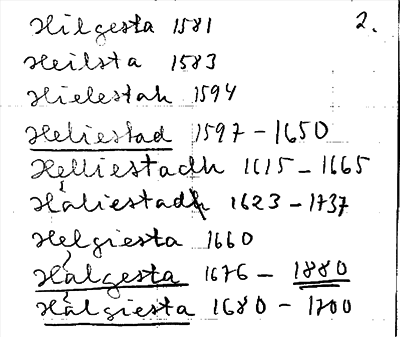 Hilgesta 1581 2.
Heilsta 1583
Hielestah 1594
Heliestad 1597 - 1650
Helliestadh 1615 - 1665
Häliestadh 1623 - 1737
Helgiesta 1660
Hälgesta 1676 - 1880
Hälgiesta 1680 - 1700